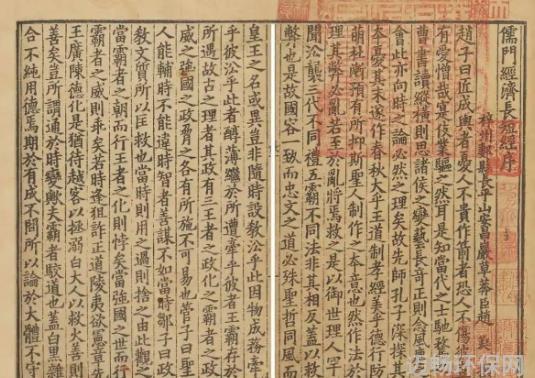 儒門經濟長短經序
梓州郪縣長平山安昌巖草莽臣趙蕤
趙子曰匠成輿者憂人不貴作箭者恐人不傷
有愛憎哉實伎業驅之然耳是知當代之士馳騖
曹書讀縱橫則思諸侯之變藝長奇正則念風
會此亦向時之論必然之理矣故先師孔子深探其
本憂其末遂作春秋大乎王道制孝經美乎德行防
萌杜漸預有所抑斯聖人制作之本意也然作法於
理其弊必亂若至於亂將焉救之是以御世理人罕
聞沿襲三代不同禮五霸不同法非其相反蓋以救
弊也是故國容一致而忠文之道必殊聖哲同風而
皇王之名或異豈非隨時設教沿乎此因物成務牽
乎彼沿乎此者醇薄繼於所遭牽乎彼者王霸存於
所遇故古之理者其政有三王者之政化之霸者之政
威之强國之政脅之各有所施不可易也管子曰聖
人能輔時不能違時智者善謀不如當時鄒子曰政
教文質所以匡救也當時則用之過則捨之由此觀之
當霸者之朝而行王者之化則悖矣當強國之世而行
霸者之威則乖矣若時逢狙詐正道陵夷欲憲章先
王廣陳德化是猶待越客以拯溺白大人以救火善則
善矣豈所謂通於時變歟夫霸者駮道也蓋白黑雜
合不純用德焉期於有成不問所以論於大體不守
迈畅环保网